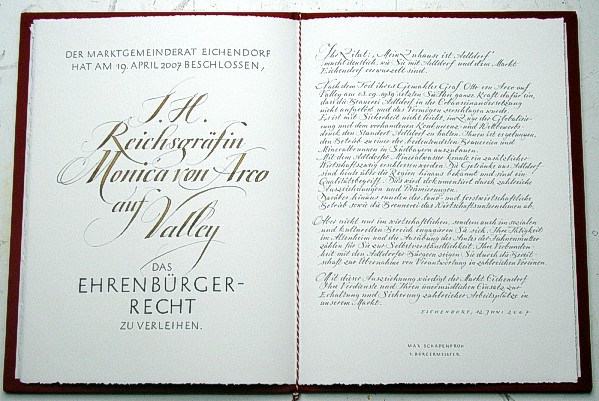 DER MARKTGEMEINDERAT EICHENDORF
HAT AM 19. APRIL 2007 BESCHLOSSEN,
I. H.
Reichsgräfin
Monica von Arco
auf Valley
DAS
EHRENBÜRGER-
RECHT
ZU VERLEIHEN.
Ihr Zitat: „Mein Zuhause ist Adldorf"
macht deutlich, wie Sie mit Adldorf und dem Markt
Eichendorf verwurzelt sind.
Nach dem Tod ihres Gemahls Graf Otto von Arco auf
Valley am 18.09.1989 setzten Sie Ihre ganze Kraft dafür ein,
dass die Brauerei Adldorf in die Erbauseinandersetzung
nicht aufgelöst und das Vermögen zerschlagen wurde.
Es ist mit Sicherheit nicht leicht, im Zuge der Globalisie-
rung und dem vorhandenen Konkurrenz- und Wettbewerbs-
druck den Standort Adldorf zu halten. Ihnen ist es gelungen,
den Betrieb zu einer der bedeutendsten Brauereien und
Mineralbrunnen in Südbayern auszubauen.
Mit dem Adldorfer Mineralwasser konnte ein zusätzlicher
Wirtschaftszweig erschlossen werden. Die Getränke aus Adldorf
sind heute über die Region hinaus bekannt und sind ein
Qualitätsbegriff. Dies wird dokumentiert durch zahlreiche
Auszeichnungen und Prämierungen.
Darüber hinaus runden der land- und forstwirtschaftliche
Betrieb sowie die Brennerei das Wirtschaftsunternehmen ab.
Aber nicht nur im wirtschaftlichen, sondern auch im sozialen
und kulturellen Bereich engagieren Sie sich. Ihre Tätigkeit
im Altenheim und die Ausübung des Amtes der Fahnenmutter
zählen für Sie zur Selbstverständlichkeit. Ihre Verbunden-
heit mit den Adldorfer Bürgern zeigen Sie durch die Bereit-
schaft zur Übernahme von Verantwortung in zahlreichen Vereinen.
Mit dieser Auszeichnung würdigt der Markt Eichendorf
Ihre Verdienste und Ihren unermüdlichen Einsatz zur
Erhaltung und Sicherung zahlreicher Arbeitsplätze in
unserem Markt.
EICHENDORF, 12. JUNI 2007
MAX SCHADENFROH
1. BÜRGERMEISTER